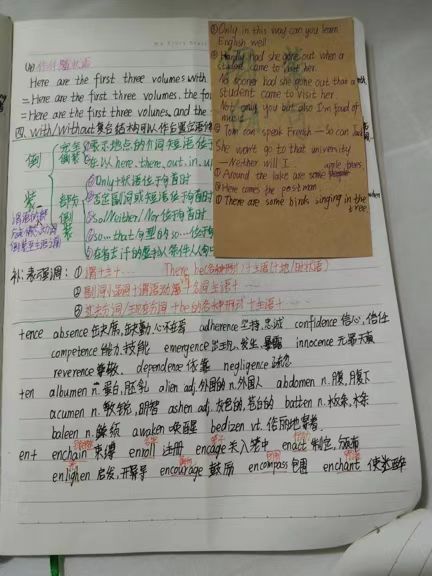 (4) 作什题状语
Here are the first three volumes with
= Here are the first three volumes, the fo
= Here are the first three volumes, and the
四. with/without复合结构可以作后置定语修
倒装
完全倒装
①表示地点的介词短语位于
②在以here, there, out, in, u
部分倒装
①Only+状语位于句首时
②否定副词或短语位于句首时
③so/Neither/Nor位于句首时
④so...that句型的so...位于句
①Only in this way can you learn
English well
②Hardly had she gone out when a
student came to visit her.
No sooner had she gone out than a
student came to visit her
Not only you but also I'm fond of
music
③Tom can speak French — So can Jack
She won't go to that university
—Neither will I
①Around the lake are some apple trees
②Here comes the post man
①There are some birds singing in the tree
补: 表强调: ① 谓+主+… There be(各种形式)+主语+(地/时状语)
+ence absence 缺席, 缺勤, 心不在焉 adherence 坚持, 忠诚 confidence 信心, 信任
competence 能力, 技能 emergence 出现, 发生, 暴露 innocence 无罪, 天真
reverence 尊敬 dependence 依靠 negligence 疏忽
+en albumen n. 蛋白, 胚乳 alien adj. 外国的 n. 外国人 abdomen n. 腹, 腹下
acumen n. 敏锐, 明智 ashen adj. 灰色的, 苍白的 batten n. 板条, 木条
baleen n. 鲸须 awaken 唤醒 bedizen vt. 俗丽地穿着
en+ enchain 束缚 enroll 注册 encage 关入笼中 enact 制定, 颁布
enlighen 启发, 开导 encourage 鼓励 encompass 包围 enchant 使迷醉